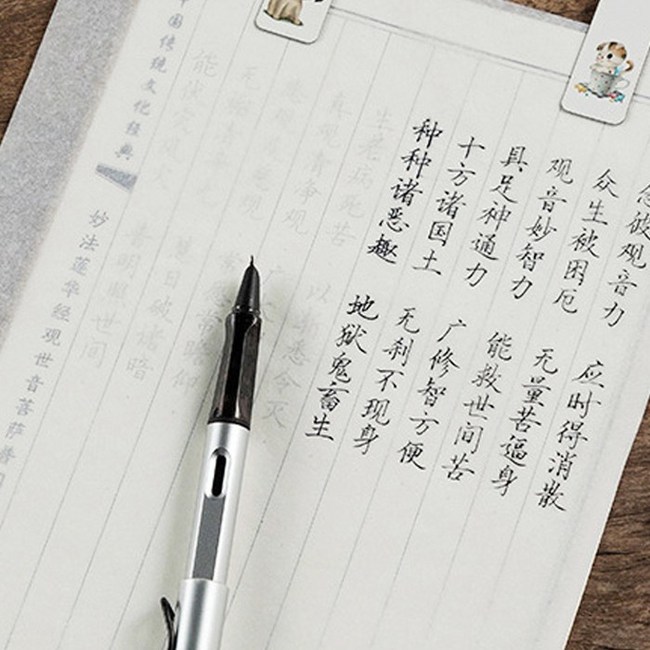 念彼观音力 应时得消散
众生被困厄 无量苦逼身
观音妙智力 能救世间苦
具足神通力 广修智方便
十方诸国土 无刹不现身
种种诸恶趣 地狱鬼畜生
生老病死苦 以渐悉令灭
真观清净观
常愿常瞻仰
慧日破诸暗
普明照世间
中国传统文化经典
妙法莲华经观世音菩萨普门